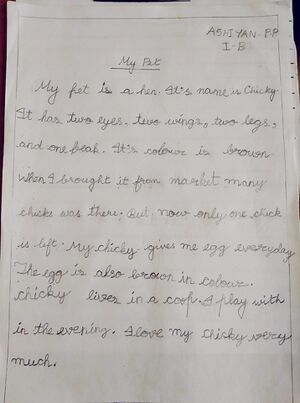 ASHIYAN. P.P
I-B
My Pet
My pet is a hen. It's name is Chicky.
It has two eyes, two wings, two legs,
and one beak. It's colour is brown
When I brought it from market many
chicks was there. But now only one chick
is left. My chicky gives me egg everyday
The egg is also brown in colour.
chicky lives in a coop. I play with
in the evening. I love my chicky very
much.